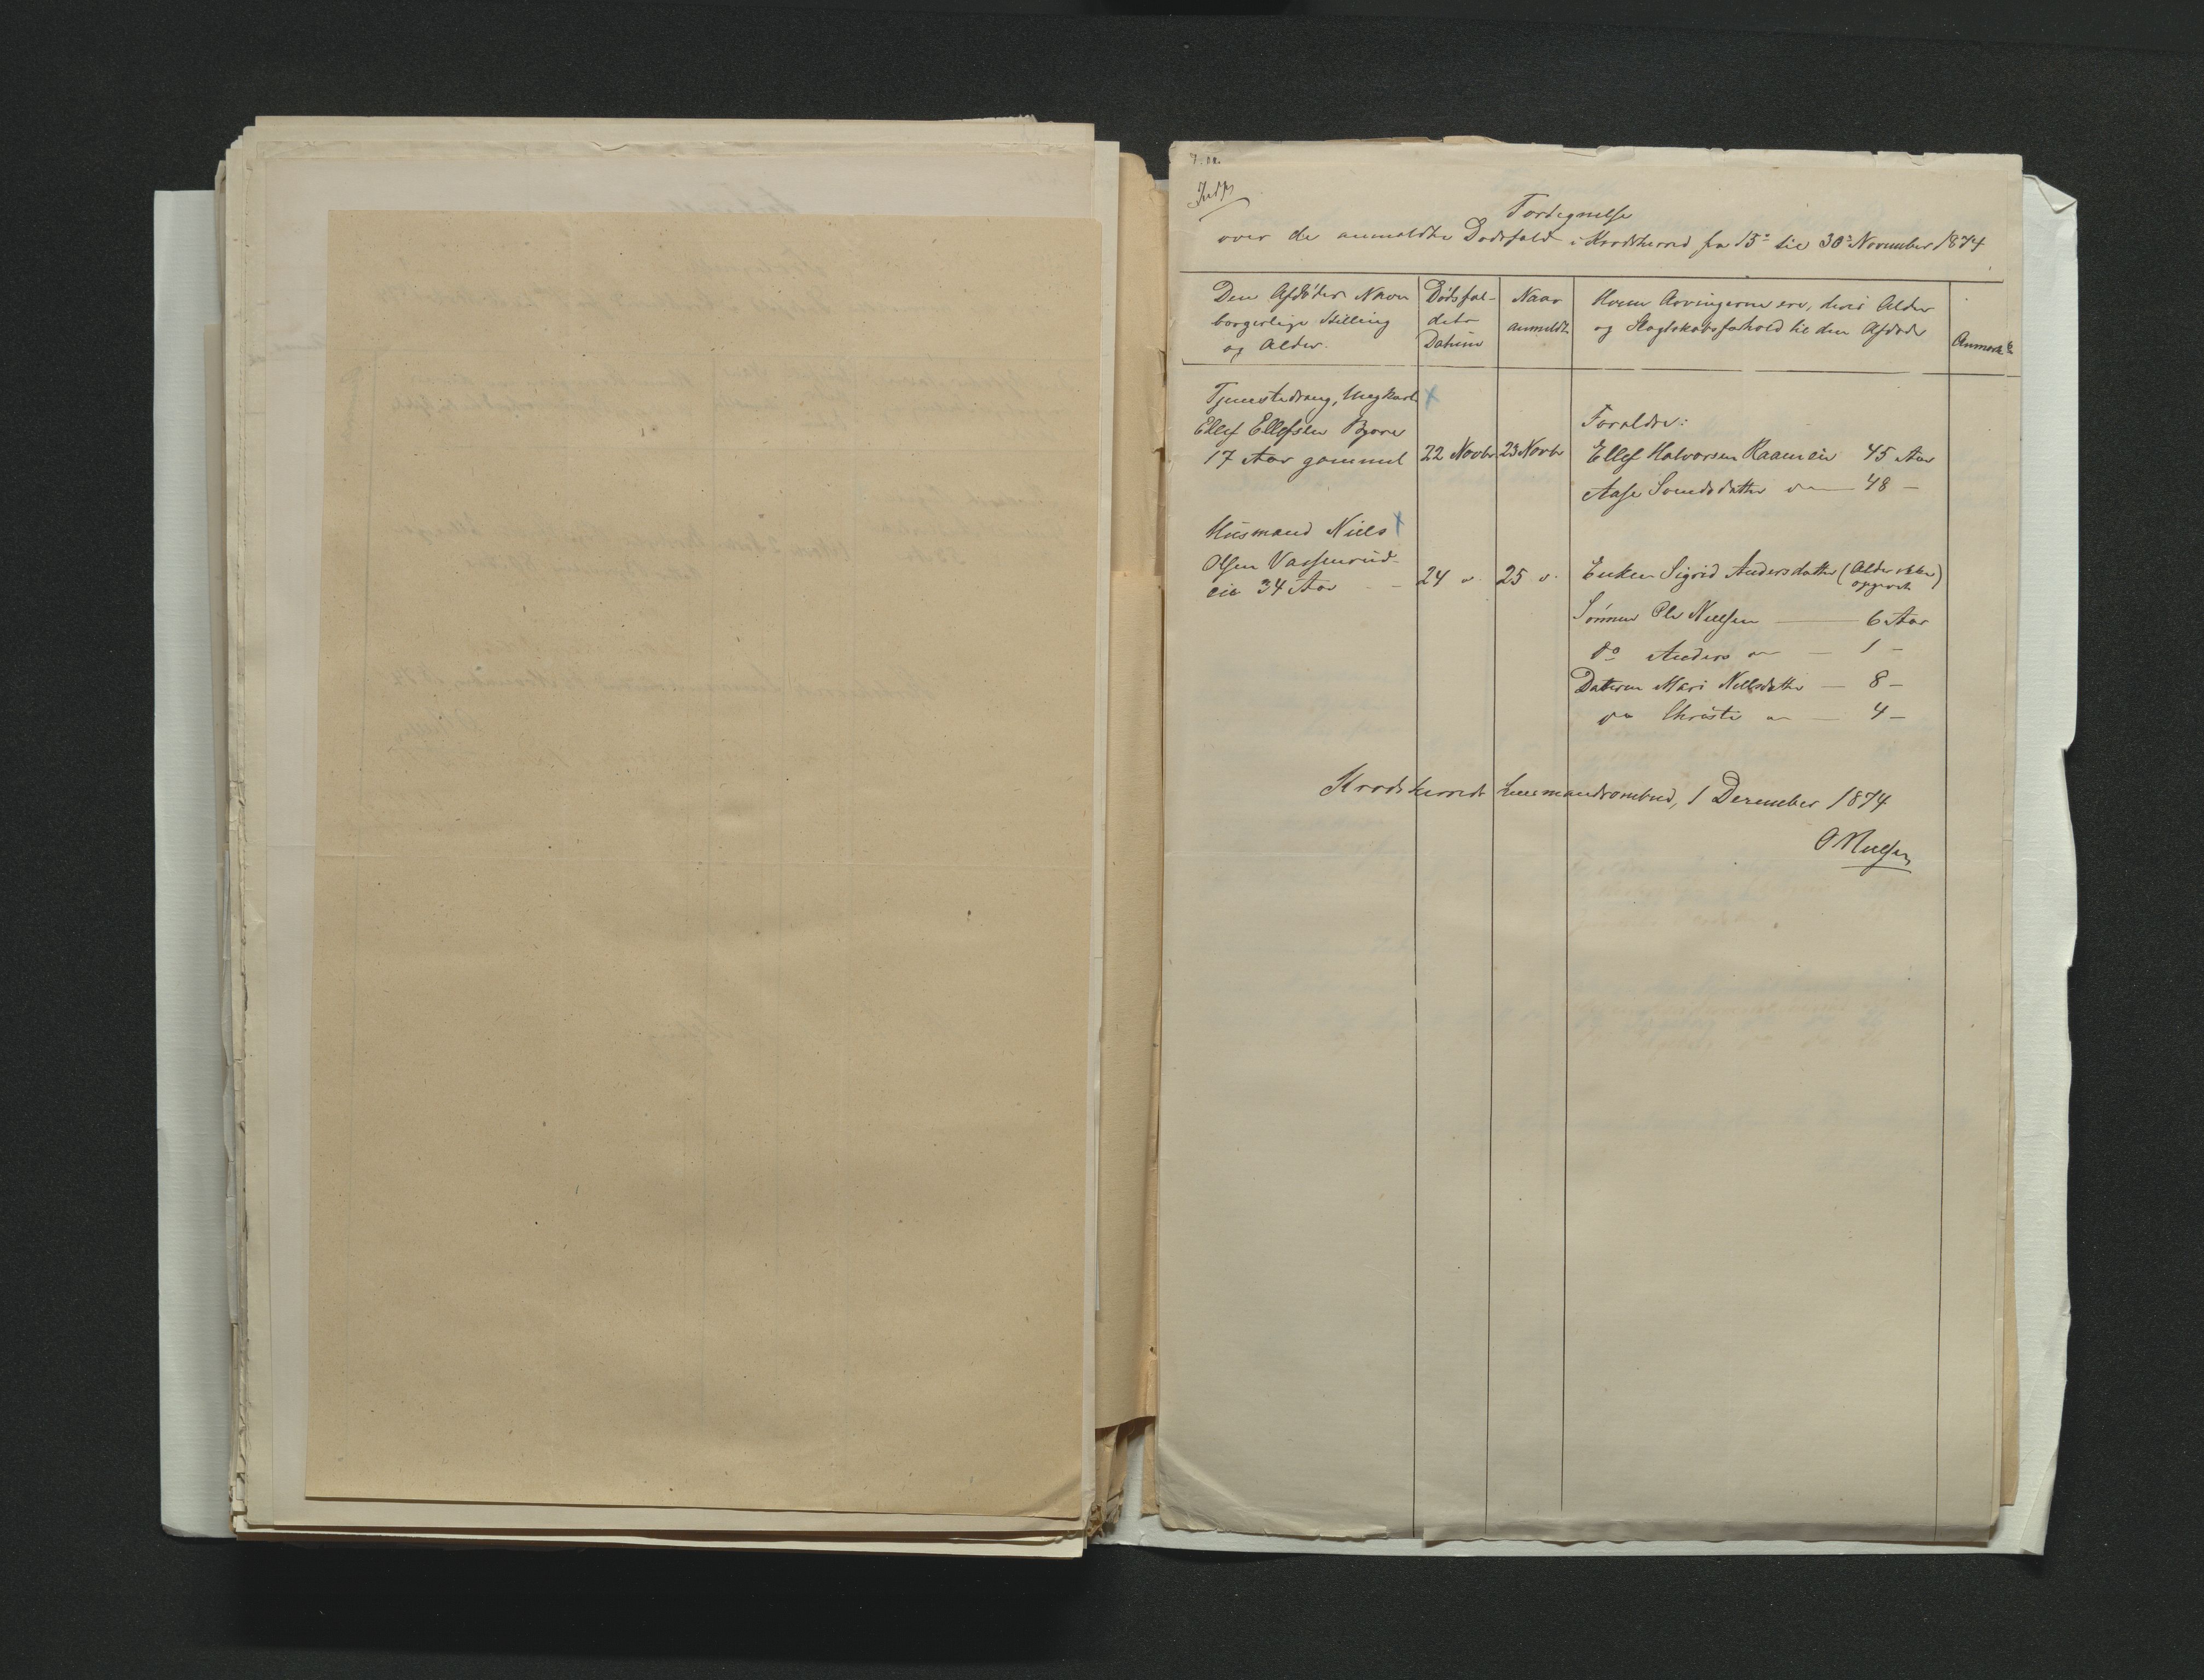 Fortegnelse
over de anmeldte Dødsfald i Krødsherred fra 15de til 30te November 1874
Den Afdødes Navn Dødsfal- Naar Hvem Arvingerne ere, deres Alder
borgerlige Stilling dets anmeldt og Slægtskabsforhold til den Afdøde
og Alder. Datum Anmærk.
Tjenestedreng, Ungkarl
Ellef Ellefsen Bjøre Forældre:
17 Aar gammel 22 Novbr 23 Novbr Ellef Halvorsen Raamein 45 Aar
Aase Svendsdatter — 48 —
Husmand Niels
Olsen Vassenrud-
eie 34 Aar — 24 " 25 " Enken Sigrid Andersdatter (Alder ikke opgivet)
Sønnen Ole Nielsen — 6 Aar
do Anders " — 1 —
Datteren Mari Nielsdatter — 8 —
do Christi " — 4 —
Krødsherreds Lensmandsombud, 1 December 1874
O Nielsen